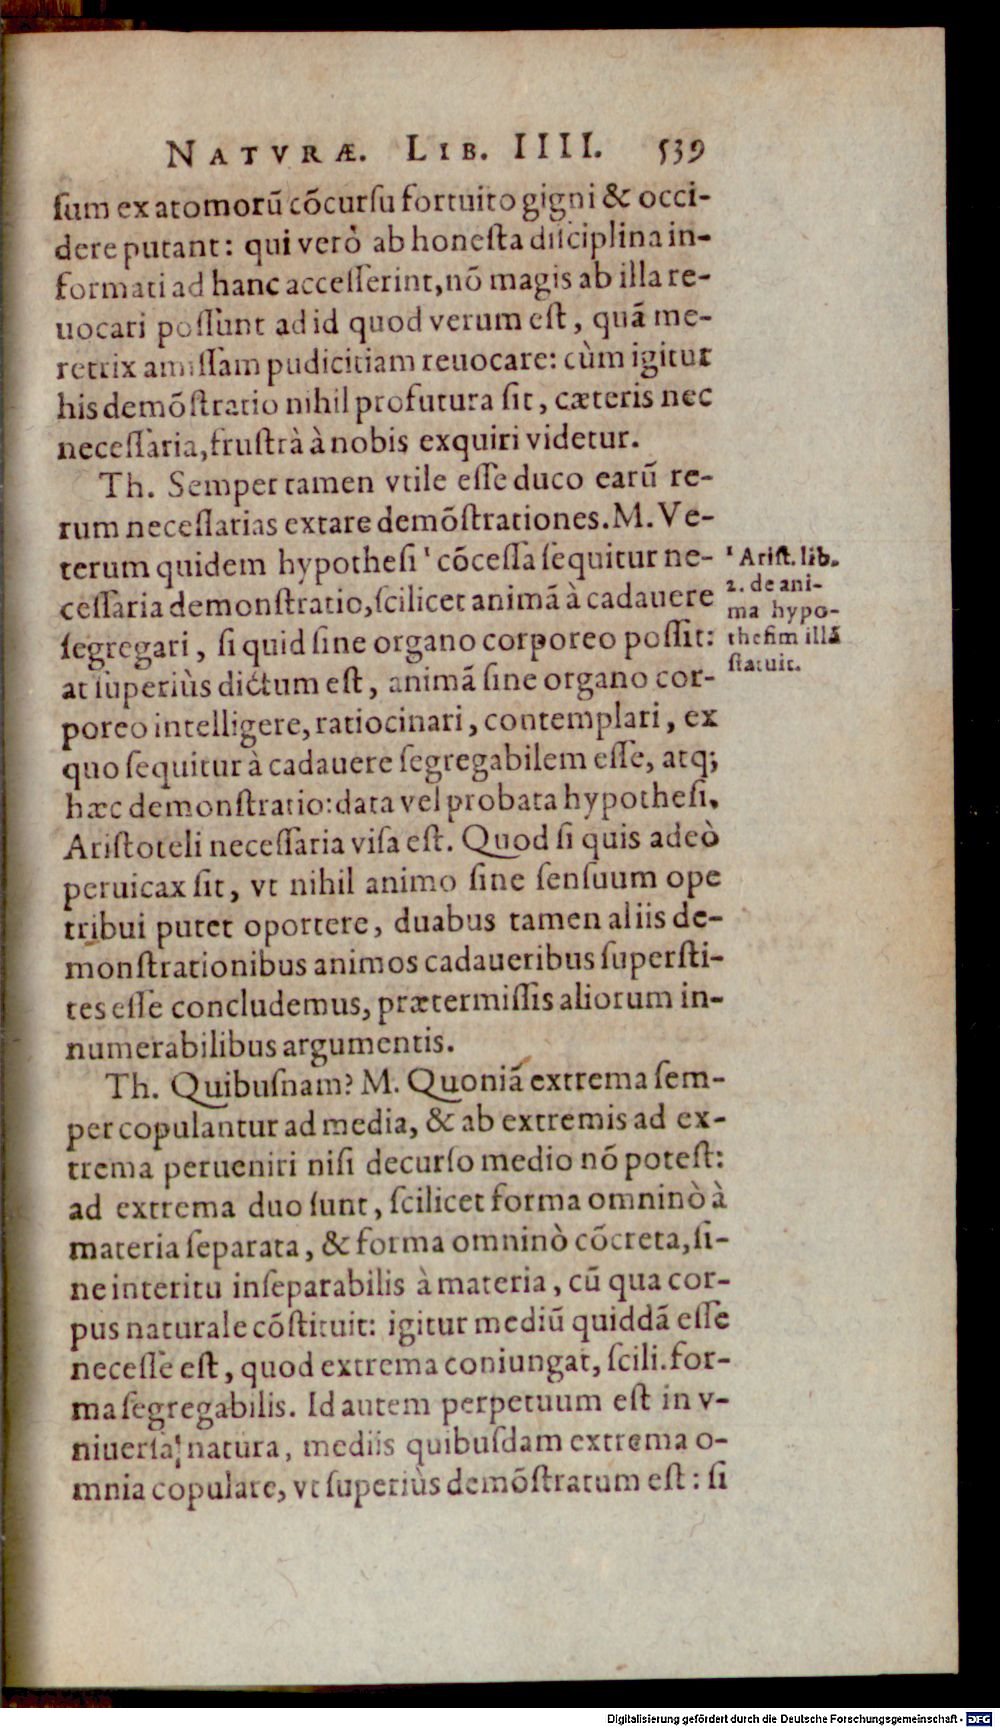 NATVRÆ. LIB. IIII. 539
ſum ex atomorũ cõcurſu fortuito gigni & occi-
dere putant: qui verò ab honeſta diſciplina in-
formati ad hanc acceſſerint, nõ magis ab illa re-
uocari poſſunt ad id quod verum eſt, quã me-
retrix amiſſam pudicitiam reuocare: cùm igitur
his demõſtratio nihil profutura ſit, cæteris nec
neceſſaria, fruſtrà à nobis exquiri videtur.
Th. Semper tamen vtile eſſe duco earũ re-
rum neceſſarias extare demõſtrationes. M. Ve-
terum quidem hypotheſi ¹ cõceſſa ſequitur ne-
ceſſaria demonſtratio, ſcilicet animã à cadauere
ſegregari, ſi quid ſine organo corporeo poſſit:
at ſuperiùs dictum eſt, animã ſine organo cor-
poreo intelligere, ratiocinari, contemplari, ex
quo ſequitur à cadauere ſegregabilem eſſe, atq;
hæc demonſtratio: data vel probata hypotheſi,
Ariſtoteli neceſſaria viſa eſt. Quod ſi quis adeò
peruicax ſit, vt nihil animo ſine ſenſuum ope
tribui putet oportere, duabus tamen aliis de-
monſtrationibus animos cadaueribus ſuperſti-
tes eſſe concludemus, prætermiſſis aliorum in-
numerabilibus argumentis.
Th. Quibuſnam? M. Quoniã extrema ſem-
per copulantur ad media, & ab extremis ad ex-
trema perueniri niſi decurſo medio nõ poteſt:
ad extrema duo ſunt, ſcilicet forma omninò à
materia ſeparata, & forma omninò cõcreta, ſi-
ne interitu inſeparabilis à materia, cũ qua cor-
pus naturale cõſtituit: igitur mediũ quiddã eſſe
neceſſe eſt, quod extrema coniungat, ſcili. for-
ma ſegregabilis. Id autem perpetuum eſt in v-
niuerſa natura, mediis quibuſdam extrema o-
mnia copulare, vt ſuperiùs demõſtratum eſt: ſi
¹ Ariſt. lib.
2. de ani-
ma hypo-
theſim illã
ſtatuit.
Digitalisierung gefördert durch die Deutsche Forschungsgemeinschaft - DFG